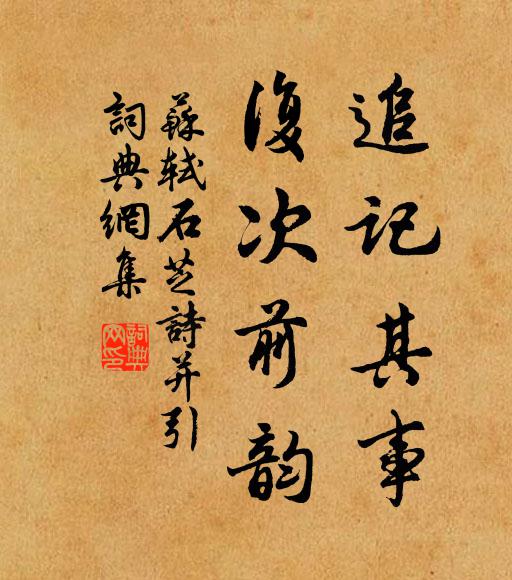 追记其事
復次前韵
蘇軾石芝詩并引
詞典網集
詞典網印